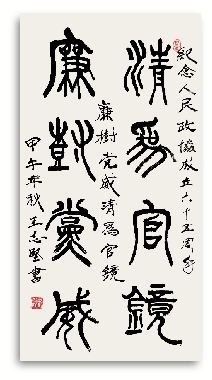 紀念人民政協成立六十五周年
清爲官鏡
廉樹党威清爲官鏡
廉樹黨威
甲午年秋王志堅書